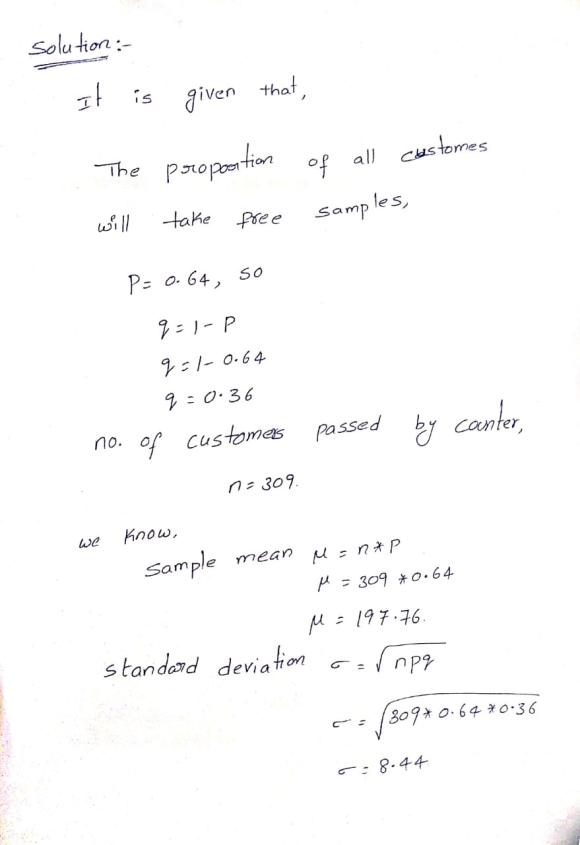 Solution :-
It is given that,
The proportion of all customes
will take free samples,
P = 0.64, so
q = 1 - P
q = 1 - 0.64
q = 0.36
no. of customers passed by counter,
n = 309.
we know,
Sample mean μ = n * P
μ = 309 * 0.64
μ = 197.76.
standard deviation σ = √npq
σ = √309 * 0.64 * 0.36
σ = 8.44